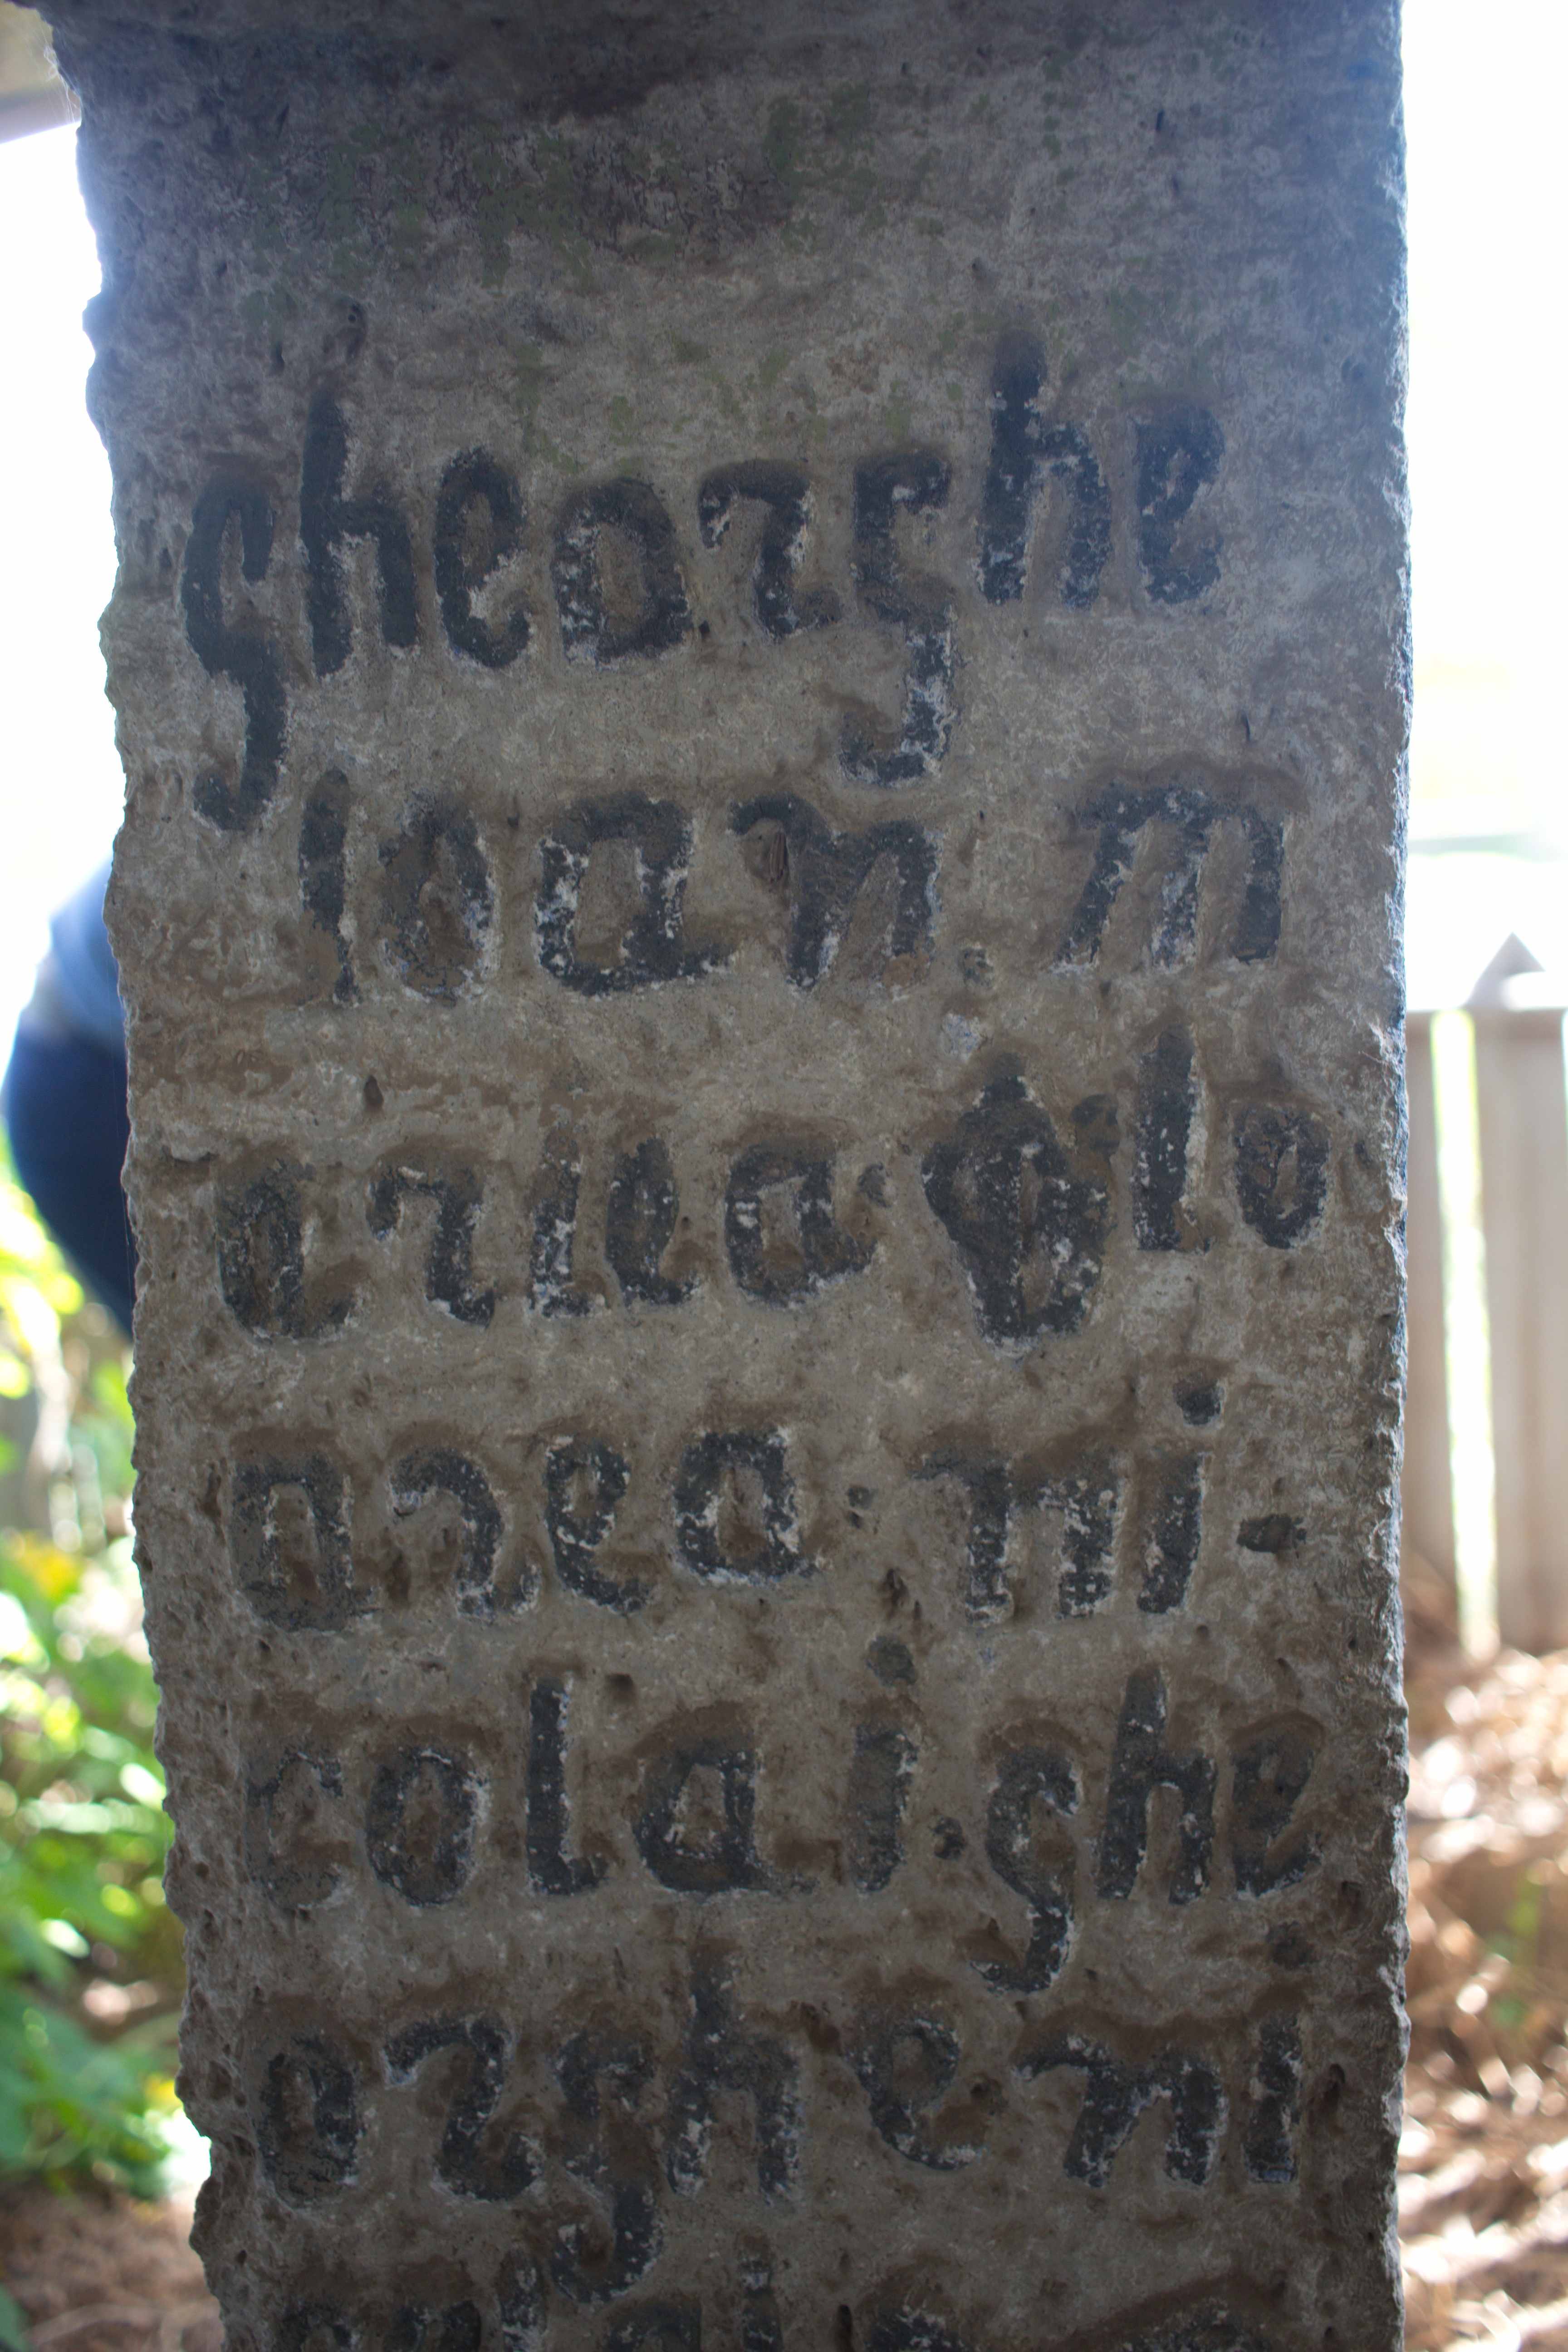 gheorghe
ioan. m
ariea. фlo
area. ni-
colai. ghe
orghe ni